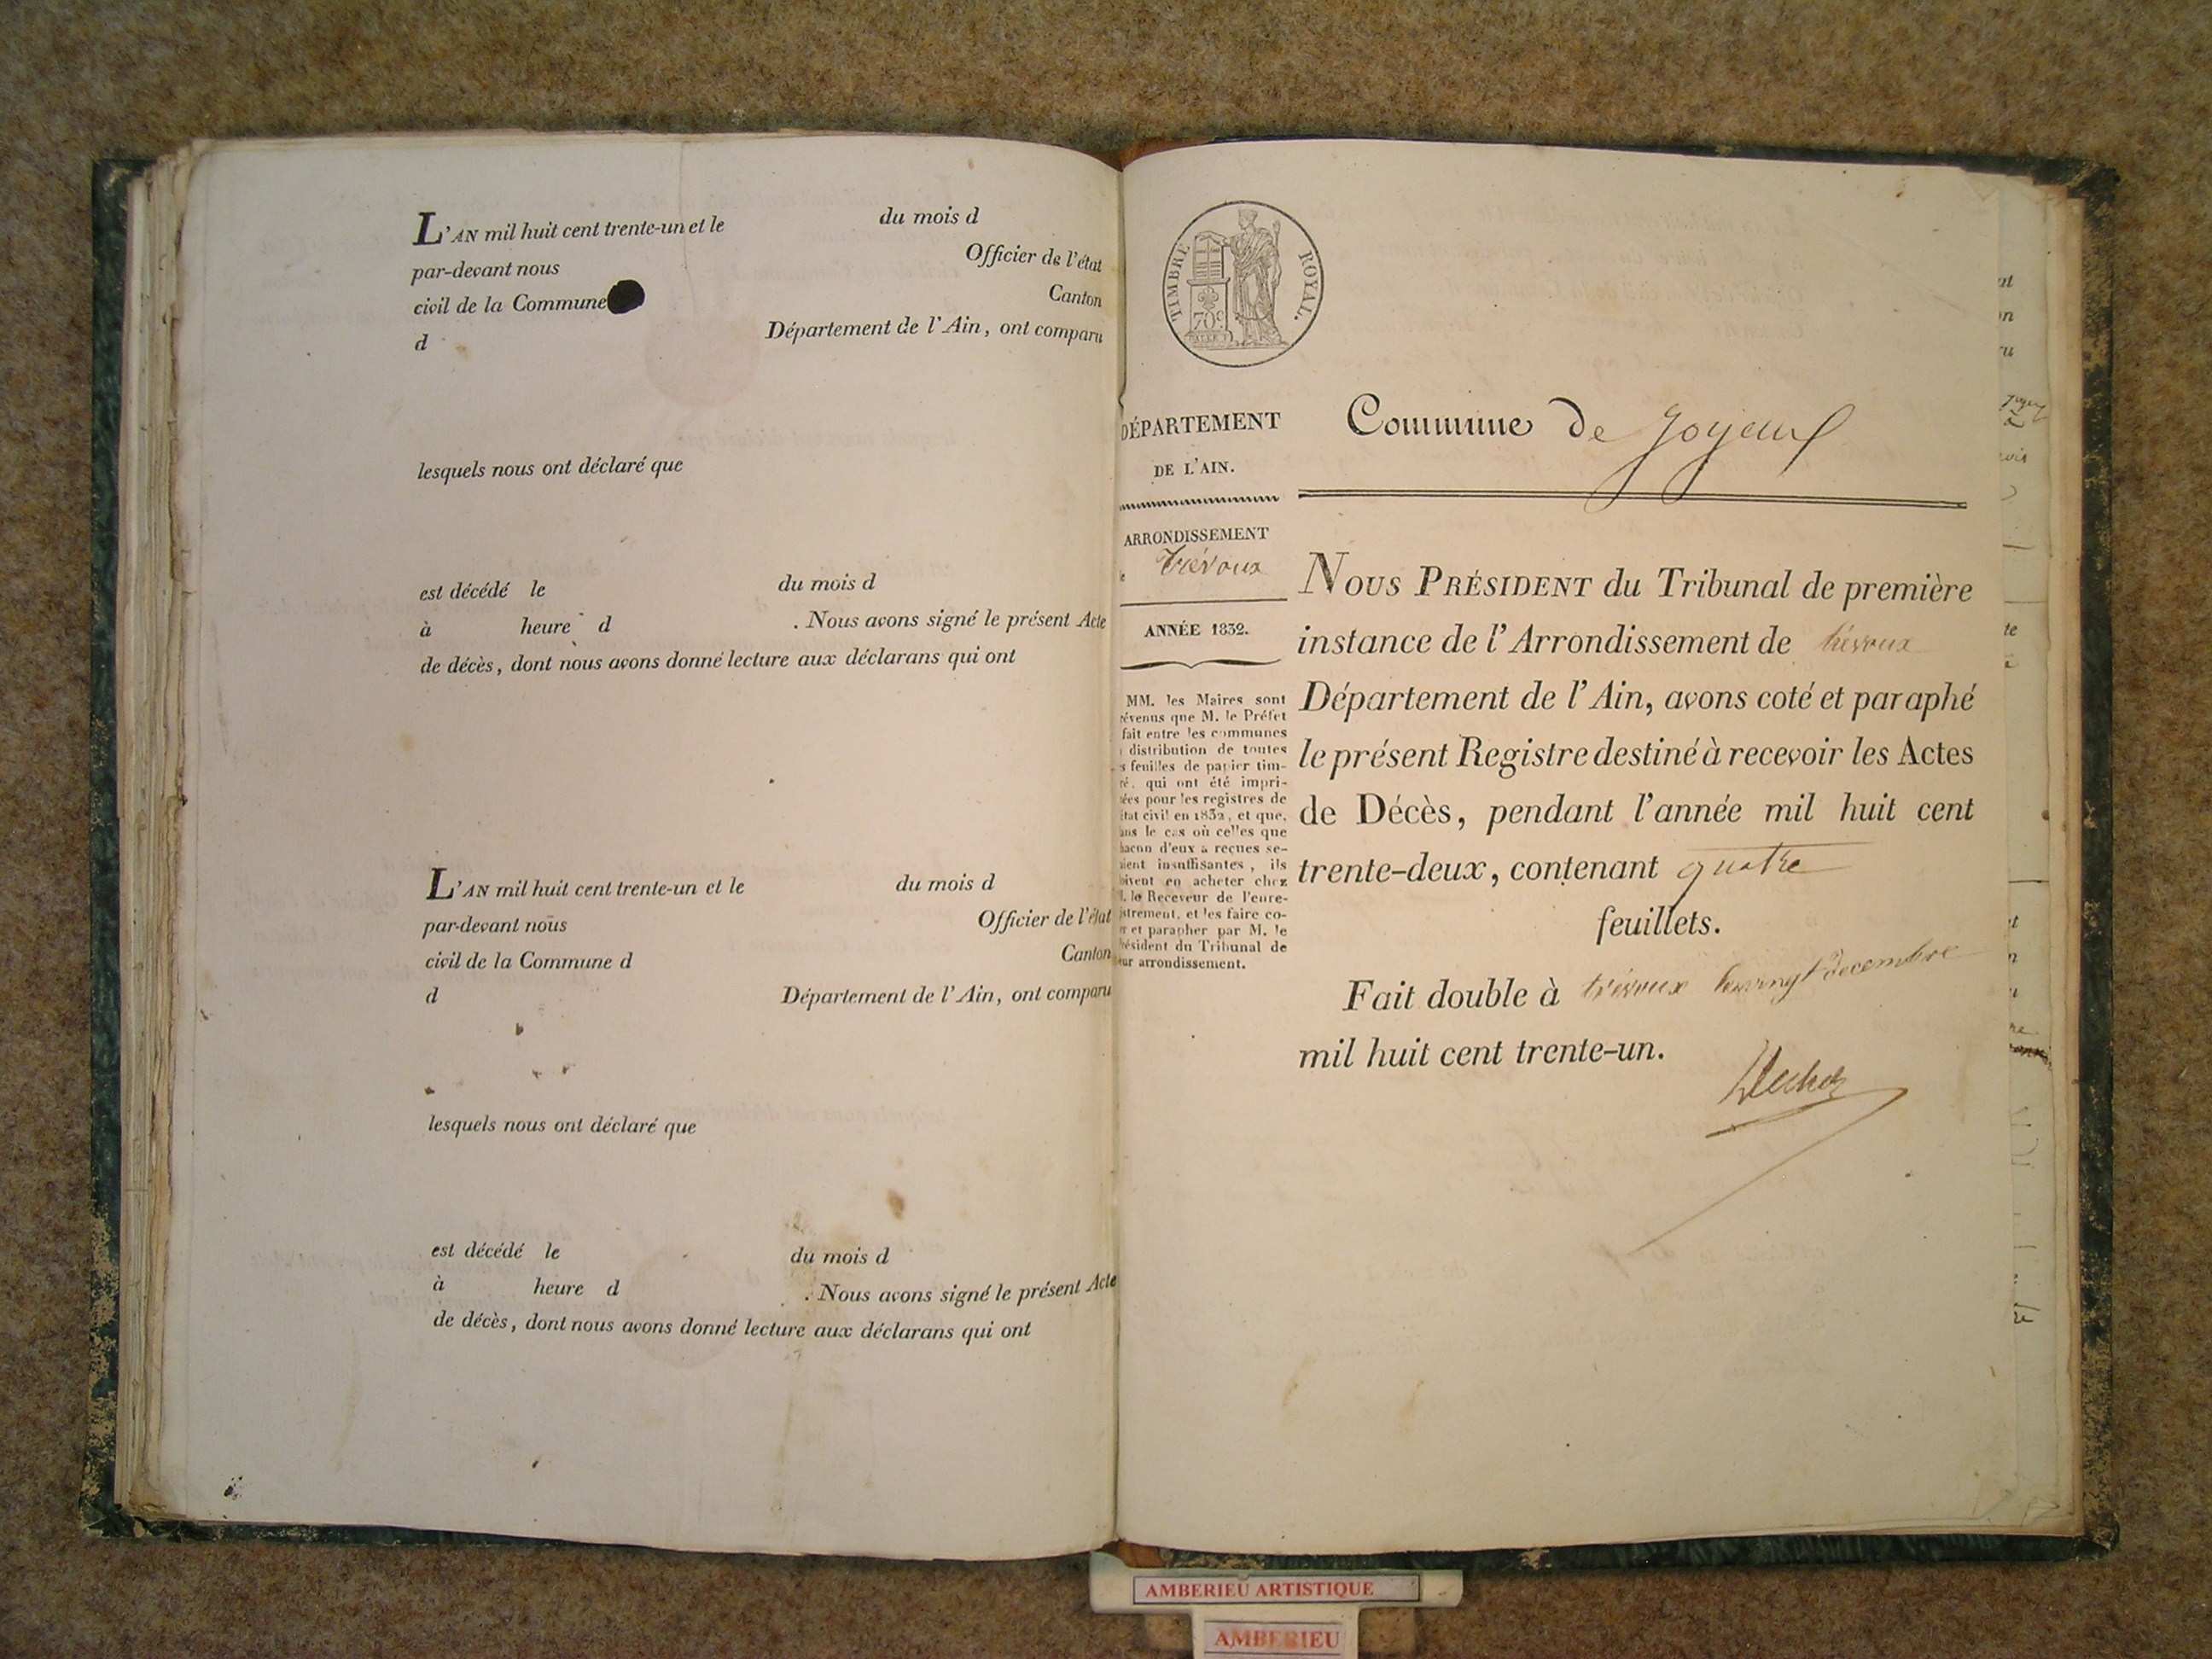 L'AN mil huit cent trente-un et le du mois d
par-devant nous Officier de l'état
civil de la Commune Canton
d Département de l'Ain, ont comparu
lesquels nous ont déclaré que
est décédé le du mois d
à heure d . Nous avons signé le présent Acte
de décès, dont nous avons donné lecture aux déclarans qui ont
L'AN mil huit cent trente-un et le du mois d
par-devant nous Officier de l'état
civil de la Commune d Canton
d Département de l'Ain, ont comparu
lesquels nous ont déclaré que
est décédé le du mois d
à heure d . Nous avons signé le présent Acte
de décès, dont nous avons donné lecture aux déclarans qui ont
TIMBRE ROYAL.
70c
DÉPARTEMENT
DE L'AIN.
ARRONDISSEMENT
Trévoux
ANNÉE 1832.
MM. les Maires sont
révenus que M. le Préfet
fait entre les communes
distribution de toutes
s feuilles de papier tim-
ré, qui ont été impri-
ées pour les registres de
état civil en 1832, et que,
ans le cas où celles que
hacun d'eux a reçues se-
aient insuffisantes, ils
oivent en acheter chez
. le Receveur de l'enre-
istrement, et les faire co-
er et parapher par M. le
résident du Tribunal de
ur arrondissement.
Commune de Joyeux
NOUS PRÉSIDENT du Tribunal de première
instance de l'Arrondissement de trévoux
Département de l'Ain, avons coté et paraphé
le présent Registre destiné à recevoir les Actes
de Décès, pendant l'année mil huit cent
trente-deux, contenant quatre
feuillets.
Fait double à trévoux le vingt décembre
mil huit cent trente-un.
AMBERIEU ARTISTIQUE
AMBERIEU